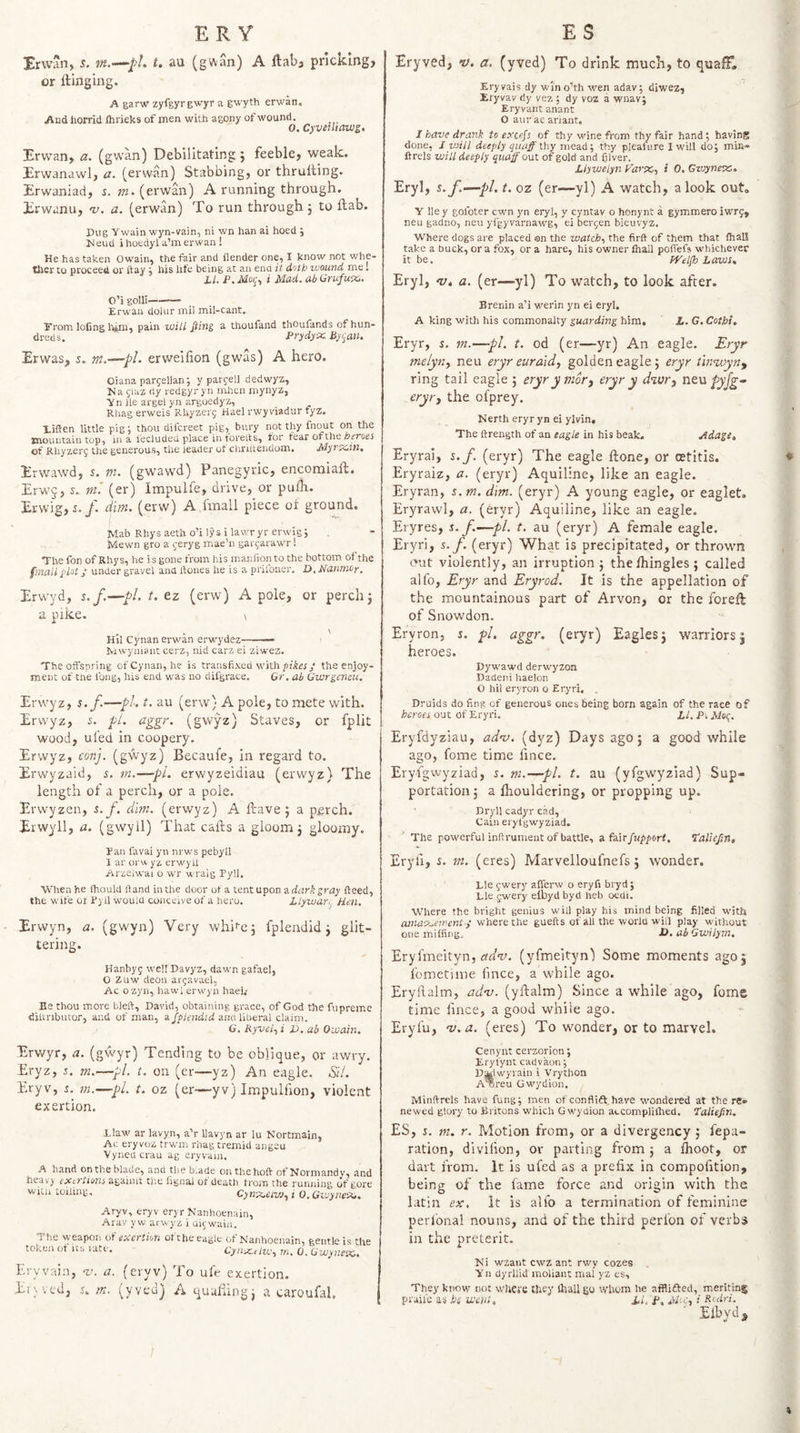 E R Y
Erwân, s. m.—pl. t. au (gwân) A ſtab, pricking,
or ſtinging.
A garw zyfgyrgwyr a gwyth erwân.
And horrid ſhrieks of men with agony of wound.
O. Cyveiliawg.
Erwan, a. (gwàn) Debilitating; feeble, weak.
Erwanawl, a. (erwân) Stabbing, or thruſting.
Erwaniad, s. m. (erwân) A running through.
Erwanu, v. a. (erwân) To run through; to ſtab.
Dug Ywain wyn-vain, ni wn han ai hoed;
Neud i hoedyl a'm erwan!
He has taken Owain, the fair and ſlender one, I know not whe-
ther to proceed or ſtay; his life being at an end it doth wound me!
Ll. P. Moç, i Mad. ab Grufuẍ.
O'i golli———
Erwan dolur mil mil-cant.
From loſing him, pain will ſting a thouſand thouſands of hun-
dreds.
Prydyx Byçan.
Erwas, s. m.—pl. erweiſion (gwâs) A hero.
Oiana parçellan; y parçell dedwyz,
Na çlaz dy redgyr yn mhen mynyz,
Yn lle argel yn argoedyz,
Rhag erweis Rhyzerç Hael rwyviadur fyz.
Liſten little pig; thou diſcreet pig, bury not thy ſnout on the
mountain top, in a ſecluded place in foreſts, for fear of the heroes
of Rhyzerç the generous, the leader of chriſtendom.
Myrxin.
Erwawd, s. m. (gwawd) Panegyric, encomiaſt.
Erwç, s. m. (er) Impulſe, drive, or puſh.
Erwig, s. f. dim. (erw) A ſmall piece of ground.
Mab Rhys aeth o'i lŷs i lawr yr erwig;
Mewn gro a çeryg mae'n garçarawr!
The ſon of Rhys, he is gone from his manſion to the bottom of the
ſmall plot; under gravel and ſtones he is a priſoner. D. Nanmor.
Erwyd, s. f.—pl. t. ez (erw) A pole, or perch;
a pike.
Hil Cynan erwân erwydez———
Mwyniant cerz, nid carz ei ziwez.
The offspring of Cynan, he is transfixed with pikes; the enjoy-
ment of the ſong, his end was no diſgrace. Gr. ab Gwrgeneu.
Erwyz, s. f.—pl. t. au (erw) A pole, to mete with.
Erwyz, s. pl. aggr. (gwŷz) Staves, or ſplit
wood, uſed in coopery.
Erwyz, conj. (gŵyz) Becauſe, in regard to.
Erwyzaid, s. m.—pl. erwyzeidiau (erwyz) The
length of a perch, or a pole.
Erwyzen, s. f. dim. (erwyz) A ſtave; a perch.
Erwyll, a. (gwyll) That caſts a gloom; gloomy.
Pan ſavai yn nrws pebyll
I ar orwyz erwyll
Arzelwai o wr wraig Pyll.
When he ſhould ſtand in the door of a tent upon a dark gray ſteed,
the wife of Pyll would conceive of a hero.
Llywarç Hen.
Erwyn, a. (gwyn) Very white; ſplendid; glit-
tering.
Hanbyç well Davyz, dawn gafael,
O Zuw deon arçavael,
Ac o zyn, hawl erwyn hael;
Be thou more bleſt, David, obtaining grace, of God the ſupreme
diſtributor, and of man, a ſplendid and liberal claim.
G. Ryvel, i D. ab Owain.
Erwyr, a. (gŵyr) Tending to be oblique, or awry.
Eryz, s. m.—pl. t. on (er—yz) An eagle. Sil.
Eryv, s. m.—pl. t. oz (er—yv) Impulſion, violent
exertion.
Llaw ar lavyn, a'r llavyn ar lu Nortmain,
Ac eryvoz trwm rhag tremid angeu
Vyned crau ag eryvain.
A hand on the blade, and the blade on the hoſt of Normandy, and
heavy exertions againſt the ſignal of death from the running of gore
with toiling.
Cynzelw, i O. Gwynex.
Aryv, eryv eryr Nanhoenain,
Arav yw arwyz i aiçwain.
The weapon of exertion of the eagle of Nanhoenain, gentle is the
token of its late.
Cynzelw, m. O. Gwynex.
Eryvain, v. a. (eryv) To uſe exertion.
Eryved, s. m. (yved) A quaffing; a carouſal.
E S
Eryved, v. a. (yved) To drink much, to quaff.
Eryvais dy win o'th wen adav; diwez,
Eryvav dy vez; dy voz a wnav;
Eryvant anant
O aur ac ariant.
I have drank to exceſs of thy wine from thy fair hand; having
done, I will deeply quaff thy mead; thy pleaſure I will do; min-
ſtrels will deeply quaff out of gold and ſilver.
Llywelyn Varx, i O. Gwynex.
Eryl, s. f.—pl. t. oz (er—yl) A watch, a look out.
Y lle y goſoter cwn yn eryl, y cyntav o honynt a gymmero iwrç,
neu gadno, neu yſgyvarnawg, ei berçen bieuvyz.
Where dogs are placed on the watch, the firſt of them that ſhall
take a buck, or a fox, or a hare, his owner ſhall poſſeſs whichever
it be.
Welſh Laws.
Eryl, v. a. (er—yl) To watch, to look after.
Brenin a'i werin yn ei eryl.
A king with his commonalty guarding him. L. G. Cothi.
Eryr, s. m.—pl. t. od (er—yr) An eagle. Eryr
melyn, neu eryr euraid, golden eagle; eryr tinwyn,
ring tail eagle; eryr y mor, eryr y dwr, neu pyſg-
eryr, the oſprey.
Nerth eryr yn ei ylvin.
The ſtrength of an eagle in his beak. Adage.
Eryrai, s. f. (eryr) The eagle ſtone, or œtitis.
Eryraiz, a. (eryr) Aquiline, like an eagle.
Eryran, s. m. dim. (eryr) A young eagle, or eaglet.
Eryrawl, a. (eryr) Aquiline, like an eagle.
Eryres, s. f.—pl. t. au (eryr) A female eagle.
Eryri, s. f. (eryr) What is precipitated, or thrown
out violently, an irruption; the ſhingles; called
alſo, Eryr and Eryrod. It is the appellation of
the mountainous part of Arvon, or the foreſt
of Snowdon.
Eryron, s. pl. aggr. (eryr) Eagles; warriors;
heroes.
Dywawd derwyzon
Dadeni haelon
O hil eryron o Eryri.
Druids do ſing of generous ones being born again of the race of
heroes out of Eryri.
Ll. P. Moç.
Eryſdyziau, adv. (dyz) Days ago; a good while
ago, ſome time ſince.
Eryſgwyziad, s. m.—pl. t. au (yſgwyziad) Sup-
portation; a ſhouldering, or propping up.
Dryll cadyr cad,
Cain eryſgwyziad.
The powerful inſtrument of battle, a fair ſupport. Talieſin.
Eryſi, s. m. (eres) Marvellouſneſs; wonder.
Lle çwery afferw o eryſi bryd;
Lle çwery eſbyd byd heb oedi.
Where the bright genius will play his mind being filled with
amazement; where the gueſts of all the world will play without
one miſſing.
D. ab Gwilym.
Eryſmeityn, adv. (yſmeityn) Some moments ago;
ſometime ſince, a while ago.
Eryſtalm, adv. (yſtalm) Since a while ago, ſome
time ſince, a good while ago.
Eryſu, v. a. (eres) To wonder, or to marvel.
Cenynt cerzorion;
Eryſynt cadvaon;
Dadwyrain i Vrython
A oreu Gwydion.
Minſtrels have ſung; men of conflict have wondered at the re-
newed glory to Britons which Gwydion accompliſhed. Talieſin.
ES, s. m. r. Motion from, or a divergency; ſepa-
ration, diviſion, or parting from; a ſhoot, or
dart from. It is uſed as a prefix in compoſition,
being of the ſame force and origin with the
latin ex. It is alſo a termination of feminine
perſonal nouns, and of the third perſon of verbs
in the preterit.
Ni wzant cwz ant rwy cozes
Yn dyrllid moliant mal yz es,
They know not where they ſhall go whom he afflicted, meriting
praiſe as he went.
Ll. P. Moç, i Rodri.
Eſbyd,